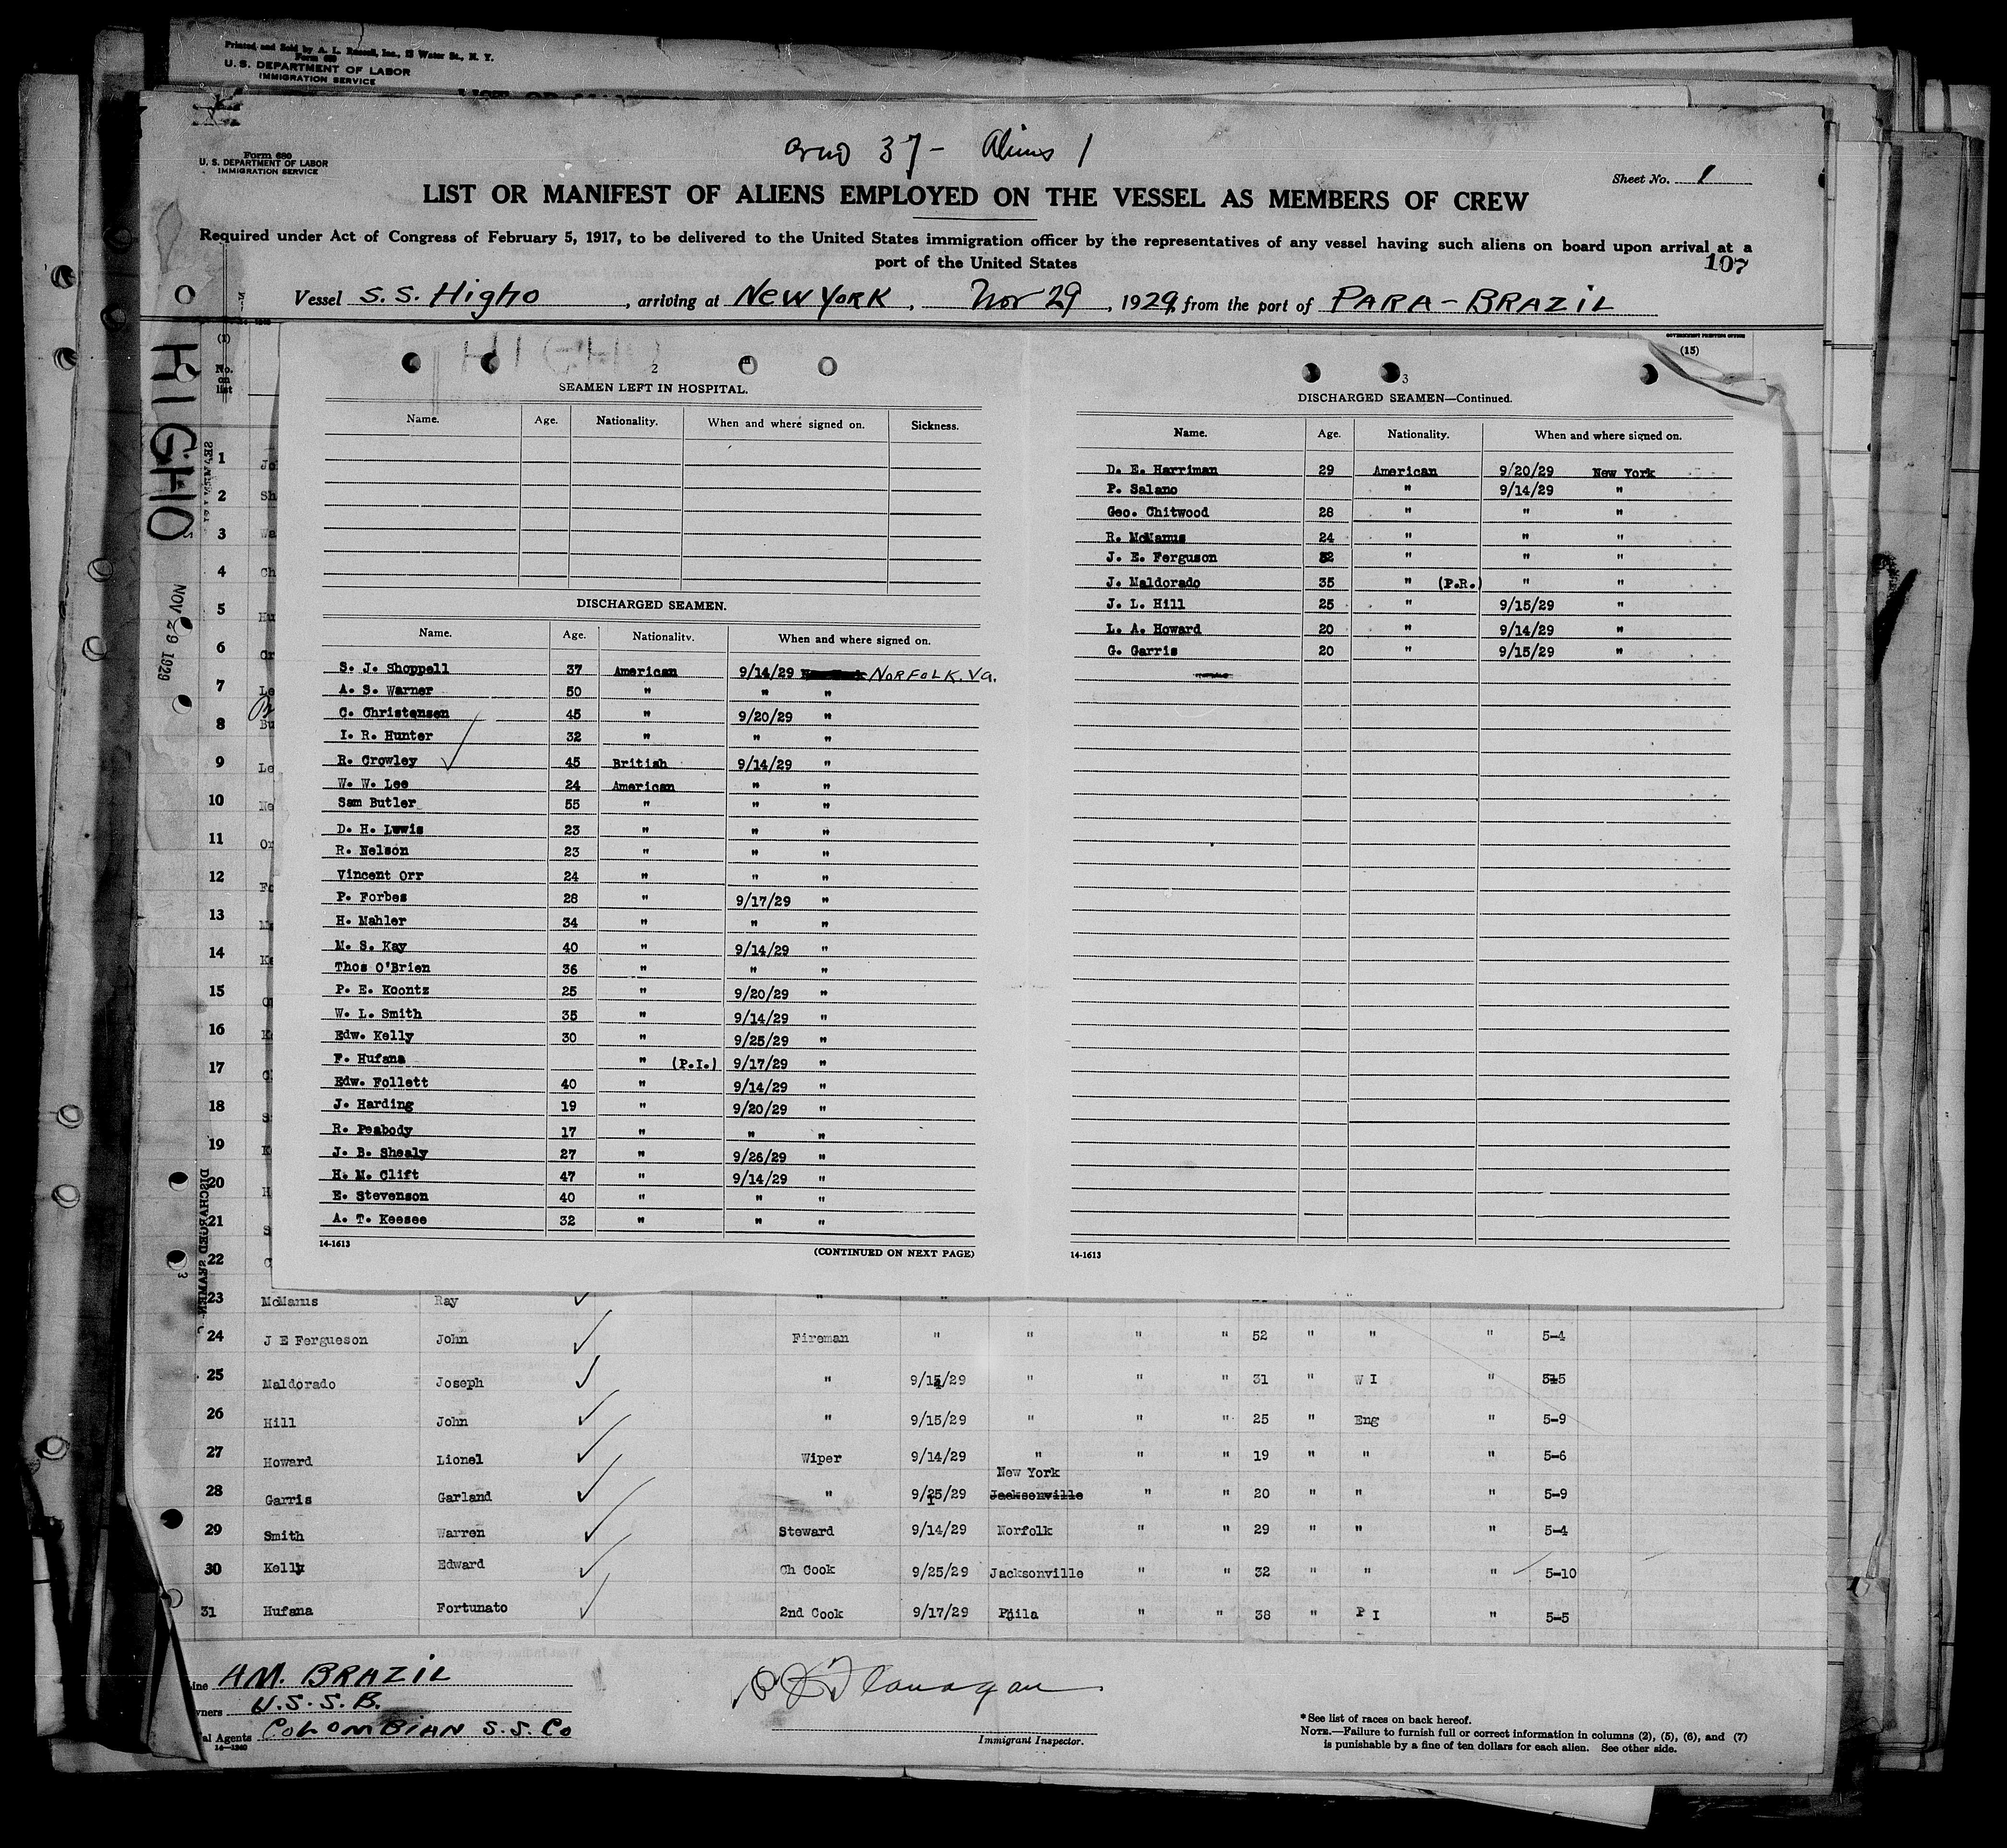 Printed and Sold by A. L. Russell, Inc., 15 Water St., N. Y.
Form 680
U. S. DEPARTMENT OF LABOR
IMMIGRATION SERVICE
37 - Aliens 1
Form 680
U. S. DEPARTMENT OF LABOR
IMMIGRATION SERVICE
Sheet No. 1
LIST OR MANIFEST OF ALIENS EMPLOYED ON THE VESSEL AS MEMBERS OF CREW
Required under Act of Congress of February 5, 1917, to be delivered to the United States immigration officer by the representatives of any vessel having such aliens on board upon arrival at a
port of the United States
107
Vessel S.S. Higho, arriving at New York, Nov 29, 1929, from the port of PARA-BRAZIL
HIGHO
NOV 29 1929
GOVERNMENT PRINTING OFFICE
(15)
(1)
No. on list
2
SEAMEN LEFT IN HOSPITAL.
Name. Age. Nationality. When and where signed on. Sickness.
DISCHARGED SEAMEN.
Name. Age. Nationality. When and where signed on.
S. J. Shoppell 37 American 9/14/29 NORFOLK. Va.
A. S. Warner 50 " " "
C. Christensen 45 " 9/20/29 "
I. R. Hunter 32 " " "
R. Crowley 45 British 9/14/29 "
W. W. Lee 24 American " "
Sam Butler 55 " " "
D. H. Lewis 23 " " "
R. Nelson 23 " " "
Vincent Orr 24 " " "
P. Forbes 28 " 9/17/29 "
H. Mahler 34 " " "
M. S. Kay 40 " 9/14/29 "
Thos O'Brien 36 " " "
P. E. Koontz 25 " 9/20/29 "
W. L. Smith 35 " 9/14/29 "
Edw. Kelly 30 " 9/25/29 "
F. Hufana " (P.I.) 9/17/29 "
Edw. Follett 40 " 9/14/29 "
J. Harding 19 " 9/20/29 "
R. Peabody 17 " " "
J. B. Shealy 27 " 9/26/29 "
H. M. Clift 47 " 9/14/29 "
E. Stevenson 40 " " "
A. T. Keesee 32 " " "
14-1613
(CONTINUED ON NEXT PAGE)
3
DISCHARGED SEAMEN—Continued.
Name. Age. Nationality. When and where signed on.
D. E. Harriman 29 American 9/20/29 New York
P. Salano " 9/14/29 "
Geo. Chitwood 28 " " "
R. McManus 24 " " "
J. E. Ferguson 52 " " "
J. Maldorado 35 " (P.R.) " "
J. L. Hill 25 " 9/15/29 "
L. A. Howard 20 " 9/14/29 "
G. Garris 20 " 9/15/29 "
14-1613
1
2
3
4
5
6
7
8
9
10
11
12
13
14
15
16
17
18
19
20
21
22
DISCHARGED SEAMEN
3
23 McManus Ray " "
24 J E Fergueson John Fireman " " " " 52 " " " 5-4
25 Maldorado Joseph " 9/14/29 " " " 31 " W I " 5-5
26 Hill John " 9/15/29 " " " 25 " Eng " 5-9
27 Howard Lionel Wiper 9/14/29 " " " 19 " " " 5-6
New York
28 Garris Garland " 9/15/29 Jacksonville " " 20 " " " 5-9
29 Smith Warren Steward 9/14/29 Norfolk " " 29 " " " 5-4
30 Kelly Edward Ch Cook 9/25/29 Jacksonville " " 32 " " " 5-10
31 Hufana Fortunato 2nd Cook 9/17/29 Phila " " 38 " P I " 5-5
Line AM. BRAZIL
Owners U.S.S.B.
Local Agents COLOMBIAN S.S. Co
14-1240
Flanagan
Immigrant Inspector.
* See list of races on back hereof.
NOTE.—Failure to furnish full or correct information in columns (2), (5), (6), and (7)
is punishable by a fine of ten dollars for each alien. See other side.